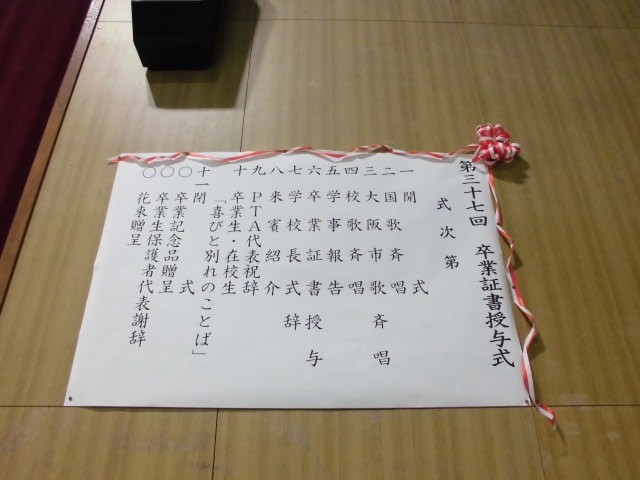 第三十七回 卒業証書授与式
式次第
一 開式
二 国歌斉唱
三 大阪市歌斉唱
四 校歌斉唱
五 学事報告
六 卒業証書授与
七 学校長式辞
八 来賓紹介
九 PTA代表祝辞
十 卒業生・在校生
「喜びと別れのことば」
十一 閉式
○ 卒業記念品贈呈
○ 卒業生保護者代表謝辞
○ 花束贈呈